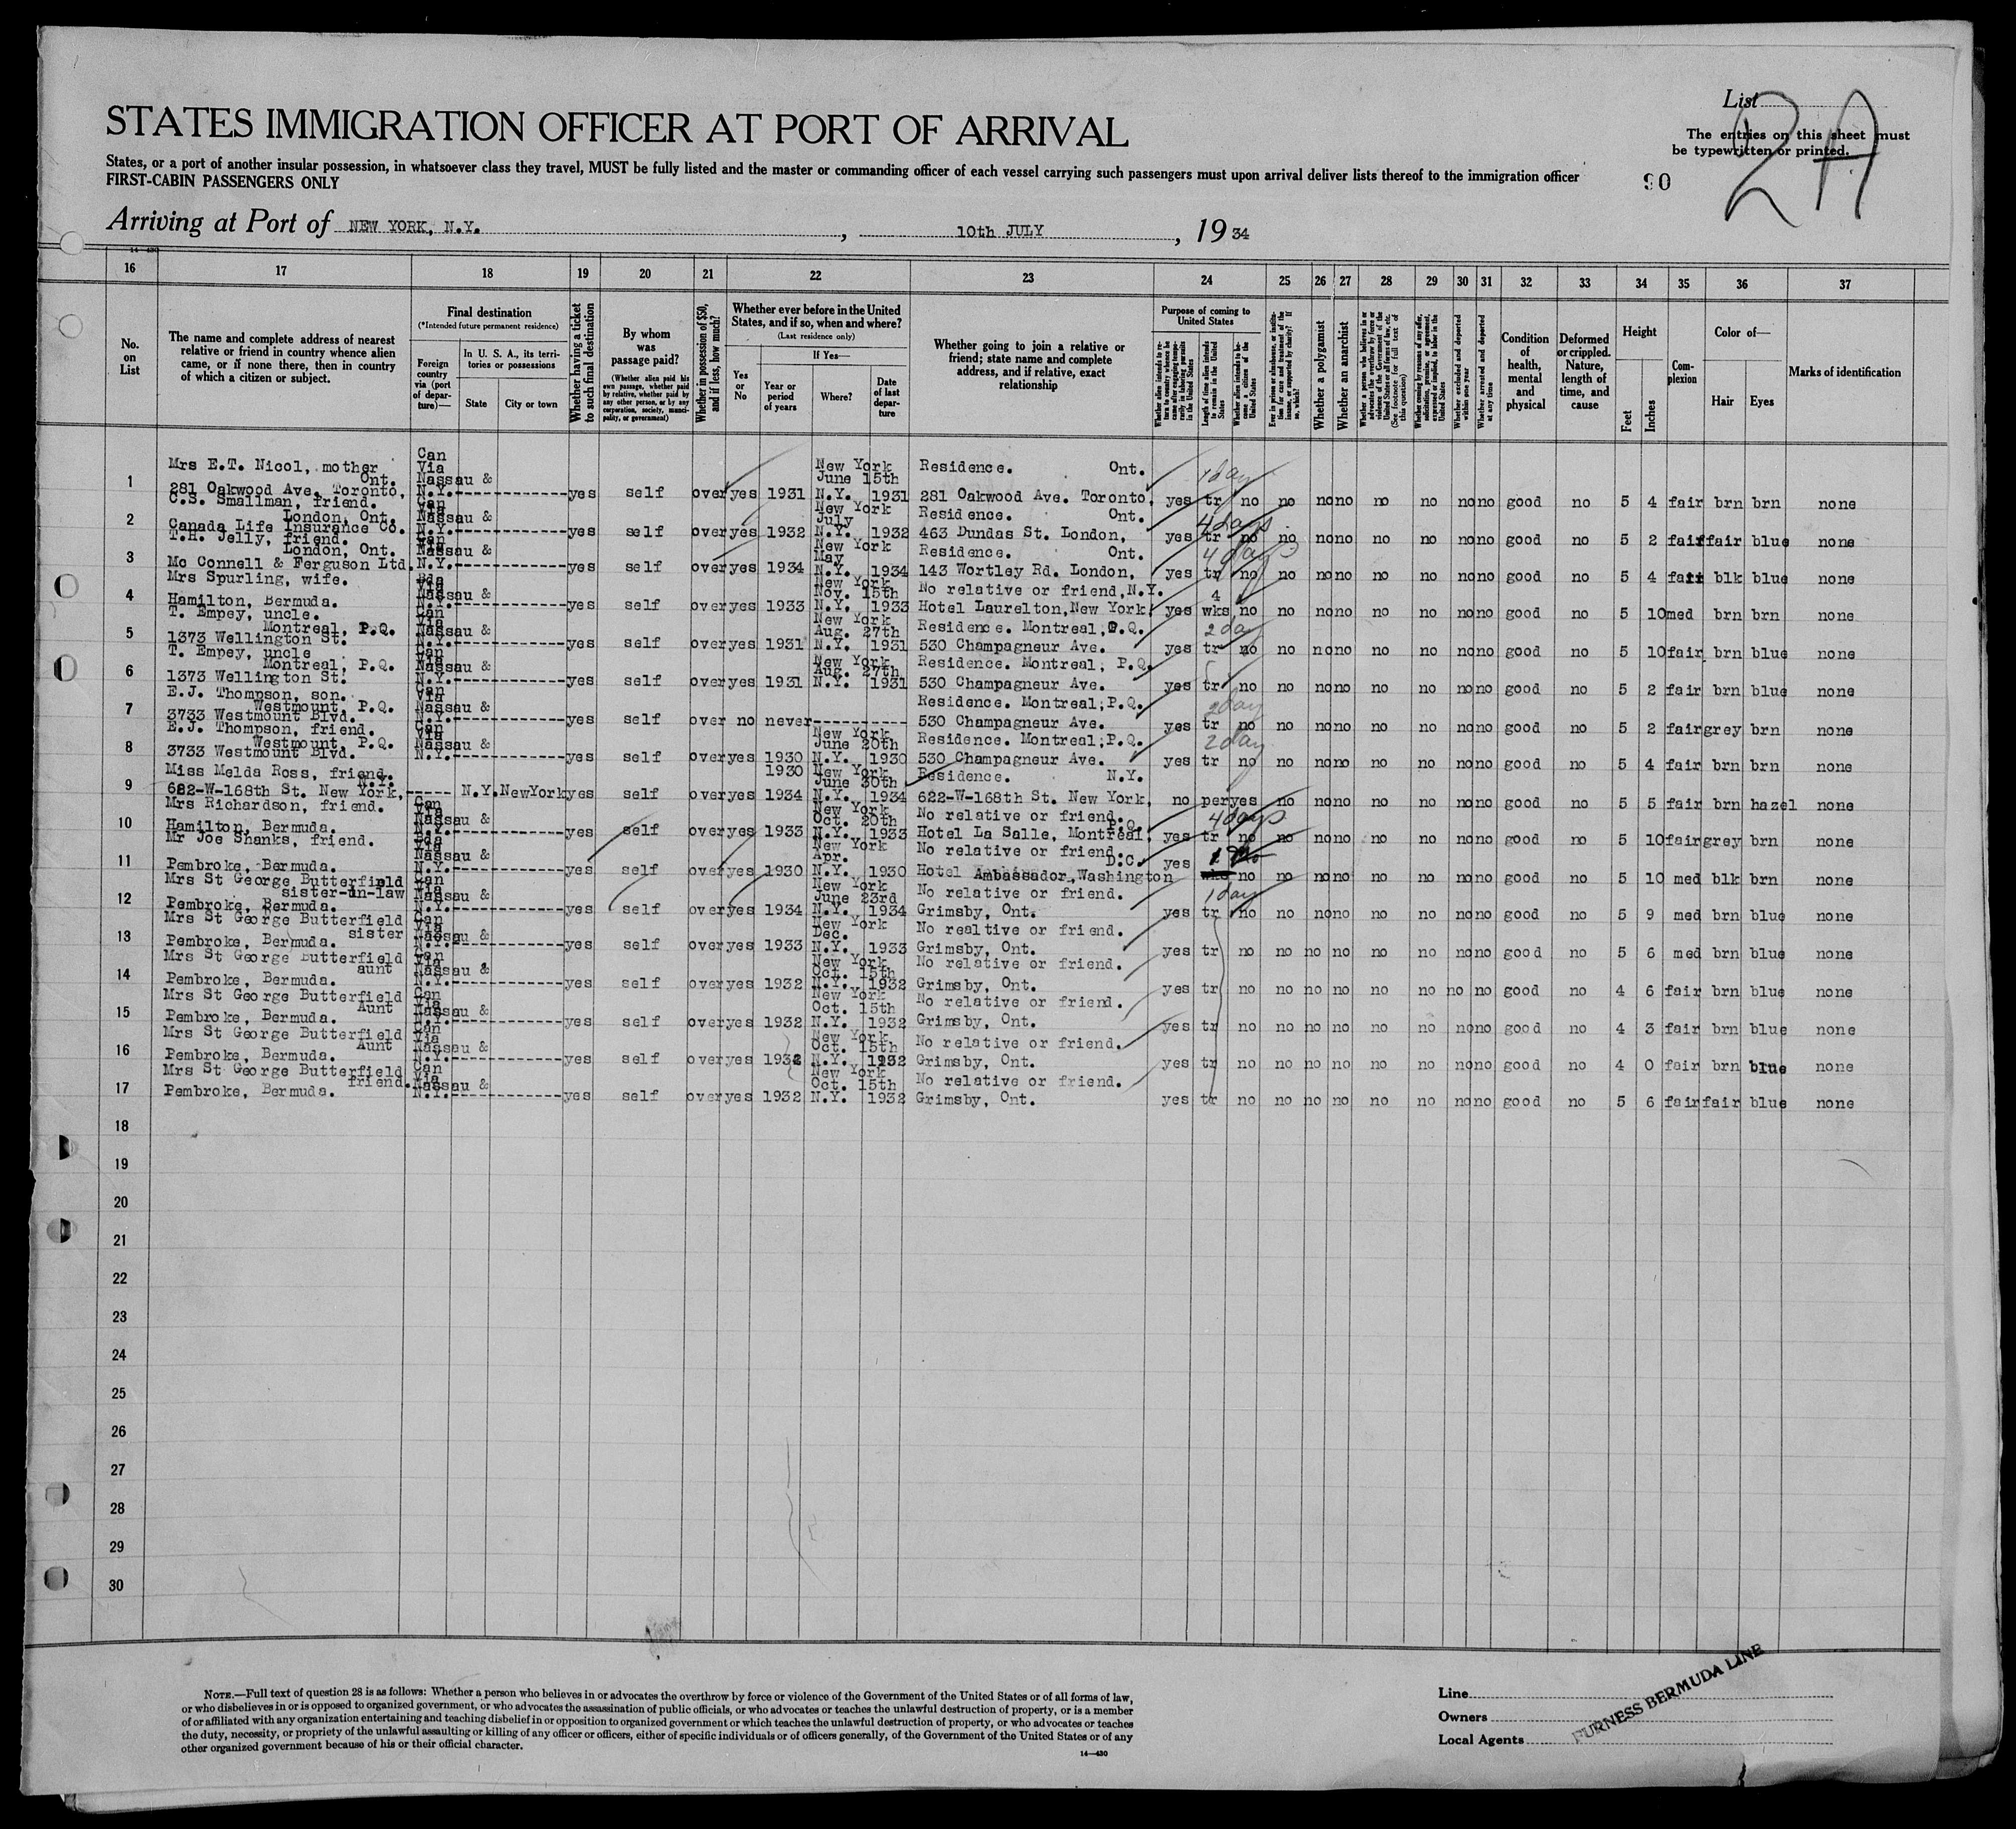 List
2A
STATES IMMIGRATION OFFICER AT PORT OF ARRIVAL
The entries on this sheet must
be typewritten or printed.
States, or a port of another insular possession, in whatsoever class they travel, MUST be fully listed and the master or commanding officer of each vessel carrying such passengers must upon arrival deliver lists thereof to the immigration officer
FIRST-CABIN PASSENGERS ONLY
90
Arriving at Port of NEW YORK, N.Y. , 10th JULY , 19 34
14-430
16 17 18 19 20 21 22 23 24 25 26 27 28 29 30 31 32 33 34 35 36 37
No. on List
The name and complete address of nearest relative or friend in country whence alien came, or if none there, then in country of which a citizen or subject.
Final destination
(*Intended future permanent residence)
Foreign country via (port of departure)—
In U. S. A., its territories or possessions
State
City or town
Whether having a ticket to such final destination
By whom was passage paid?
(Whether alien paid his own passage, whether paid by relative, whether paid by any other person, or by any corporation, society, municipality, or government)
Whether in possession of $50, and if less, how much?
Whether ever before in the United States, and if so, when and where?
(Last residence only)
Yes or No
If Yes—
Year or period of years
Where?
Date of last departure
Whether going to join a relative or friend; state name and complete address, and if relative, exact relationship
Purpose of coming to United States
Whether alien intends to return to country whence he came after engaging temporarily in laboring pursuits in the United States
Length of time alien intends to remain in the United States
Whether alien intends to become a citizen of the United States
Ever in prison or almshouse, or institution for care and treatment of the insane, or supported by charity? If so, which?
Whether a polygamist
Whether an anarchist
Whether a person who believes in or advocates the overthrow by force or violence of the Government of the United States or all forms of law, etc. (See footnote for full text of this question)
Whether coming by reason of any offer, solicitation, promise, or agreement, expressed or implied, to labor in the United States
Whether excluded and deported within one year
Whether arrested and deported at any time
Condition of health, mental and physical
Deformed or crippled. Nature, length of time, and cause
Height
Feet
Inches
Complexion
Color of—
Hair
Eyes
Marks of identification
1 Mrs E.T. Nicol, mother Ont. 281 Oakwood Ave. Toronto, Can Via Nassau & N.Y. yes self over yes 1931 New York June 15th N.Y. 1931 Residence. Ont. 281 Oakwood Ave. Toronto. 1 day yes tr no no no no no no no no good no 5 4 fair brn brn none
2 C.S. Smallman, friend. London, Ont. Canada Life Insurance Co. Can Via Nassau & N.Y. yes self over yes 1932 New York July N.Y. 1932 Residence. Ont. 463 Dundas St. London, 4 days yes tr no no no no no no no no good no 5 2 fair fair blue none
3 T.H. Jelly, friend. London, Ont. Mc Connell & Ferguson Ltd. Can Via Nassau & N.Y. yes self over yes 1934 New York May N.Y. 1934 Residence. Ont. 143 Wortley Rd. London, 4 days yes tr no no no no no no no no good no 5 4 fair blk blue none
4 Mrs Spurling, wife. Hamilton, Bermuda. Bda Via Nassau & N.Y. yes self over yes 1933 New York Nov. 15th N.Y. 1933 No relative or friend, N.Y. Hotel Laurelton, New York. yes 4 wks no no no no no no no no good no 5 10 med brn brn none
5 T. Empey, uncle. Montreal, P.Q. 1373 Wellington St. Can Via Nassau & N.Y. yes self over yes 1931 New York Aug. 27th N.Y. 1931 Residence. Montreal, P.Q. 530 Champagneur Ave. 2 day yes tr no no no no no no no no good no 5 10 fair brn blue none
6 T. Empey, uncle Montreal, P.Q. 1373 Wellington St. Can Via Nassau & N.Y. yes self over yes 1931 New York Aug. 27th N.Y. 1931 Residence. Montreal, P.Q. 530 Champagneur Ave. yes tr no no no no no no no no good no 5 2 fair brn blue none
7 E.J. Thompson, son. Westmount, P.Q. 3733 Westmount Blvd. Can Via Nassau & N.Y. yes self over no never Residence. Montreal, P.Q. 530 Champagneur Ave. 2 day yes tr no no no no no no no no good no 5 2 fair grey brn none
8 E.J. Thompson, friend. Westmount, P.Q. 3733 Westmount Blvd. Can Via Nassau & N.Y. yes self over yes 1930 New York June 20th N.Y. 1930 Residence. Montreal, P.Q. 530 Champagneur Ave. 2 day yes tr no no no no no no no no good no 5 4 fair brn brn none
9 Miss Melda Ross, friend. N.Y. 622-W-168th St. New York, ----- N.Y. New York yes self over yes 1930 1934 New York June 30th N.Y. 1934 Residence. N.Y. 622-W-168th St. New York, no per yes no no no no no no no good no 5 5 fair brn hazel none
10 Mrs Richardson, friend. Hamilton, Bermuda. Can Via Nassau & N.Y. yes self over yes 1933 New York Oct. 20th N.Y. 1933 No relative or friend. P.Q. Hotel La Salle, Montreal. 4 days yes tr no no no no no no no no good no 5 10 fair grey brn none
11 Mr Joe Shanks, friend. Pembroke, Bermuda. Bda Via Nassau & N.Y. yes self over yes 1930 New York Apr. N.Y. 1930 No relative or friend. D.C. Hotel Ambassador, Washington yes wks no no no no no no no no good no 5 10 med blk brn none
12 Mrs St George Butterfield sister-in-law Pembroke, Bermuda. Can Via Nassau & N.Y. yes self over yes 1934 New York June 23rd N.Y. 1934 No relative or friend. Grimsby, Ont. 1 day yes tr no no no no no no no no good no 5 9 med brn blue none
13 Mrs St George Butterfield sister Pembroke, Bermuda. Can Via Nassau & N.Y. yes self over yes 1933 New York Dec. N.Y. 1933 No realtive or friend. Grimsby, Ont. yes tr no no no no no no no no good no 5 6 med brn blue none
14 Mrs St George Butterfield aunt Pembroke, Bermuda. Can Via Nassau & N.Y. yes self over yes 1932 New York Oct. 15th N.Y. 1932 No relative or friend. Grimsby, Ont. yes tr no no no no no no no no good no 4 6 fair brn blue none
15 Mrs St George Butterfield Aunt Pembroke, Bermuda. Can Via Nassau & N.Y. yes self over yes 1932 New York Oct. 15th N.Y. 1932 No relative or friend. Grimsby, Ont. yes tr no no no no no no no no good no 4 3 fair brn blue none
16 Mrs St George Butterfield Aunt Pembroke, Bermuda. Can Via Nassau & N.Y. yes self over yes 1932 New York Oct. 15th N.Y. 1932 No relative or friend. Grimsby, Ont. yes tr no no no no no no no no good no 4 0 fair brn blue none
17 Mrs St George Butterfield friend. Pembroke, Bermuda. Can Via Nassau & N.Y. yes self over yes 1932 New York Oct. 15th N.Y. 1932 No relative or friend. Grimsby, Ont. yes tr no no no no no no no no good no 5 6 fair fair blue none
18
19
20
21
22
23
24
25
26
27
28
29
30
NOTE.—Full text of question 28 is as follows: Whether a person who believes in or advocates the overthrow by force or violence of the Government of the United States or of all forms of law,
or who disbelieves in or is opposed to organized government, or who advocates the assassination of public officials, or who advocates or teaches the unlawful destruction of property, or is a member
of or affiliated with any organization entertaining and teaching disbelief in or opposition to organized government or which teaches the unlawful destruction of property, or who advocates or teaches
the duty, necessity, or propriety of the unlawful assaulting or killing of any officer or officers, either of specific individuals or of officers generally, of the Government of the United States or of any
other organized government because of his or their official character.
14—430
Line
Owners
Local Agents
FURNESS BERMUDA LINE